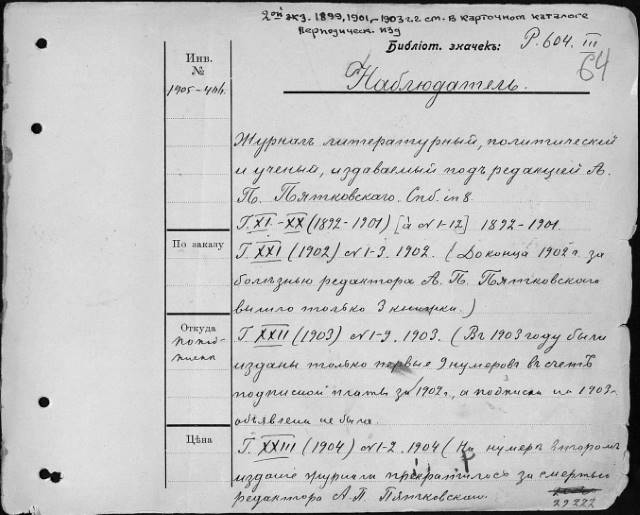 2ой экз. 1899, 1901, - 1903 г.г. см. в карточном каталоге
период ическ. изд
Библіот. значекъ: Р. 604. III
64
Наблюдатель.
Инв.
№
1905-406.
Журналъ литературный, политическій
и ученый, издаваемый подъ редакціей А.
П. Пятковскаго. Спб. in 8.
Г. XI-XX (1892-1901) [à №1-12] 1892-1901.
По заказу
Г. XXI (1902) №1-3. 1902. (До конца 1902 г. за
болѣзнью редактора А. П. Пятковскаго
вышло только 3 книжки.)
Откуда
Г. XXII (1903) №1-9. 1903. (Въ 1903 году были
изданы только первые 9 нумеровъ въ счетъ
подписной платы за 1902 г., а подписка на 1903 г.
объявлена не была.
Цѣна
Г. XXIII (1904) №1-2. 1904 (На нумерѣ второмъ
изданіе журнала прекратилось за смертью
редактора А. П. Пятковскаго.
29222